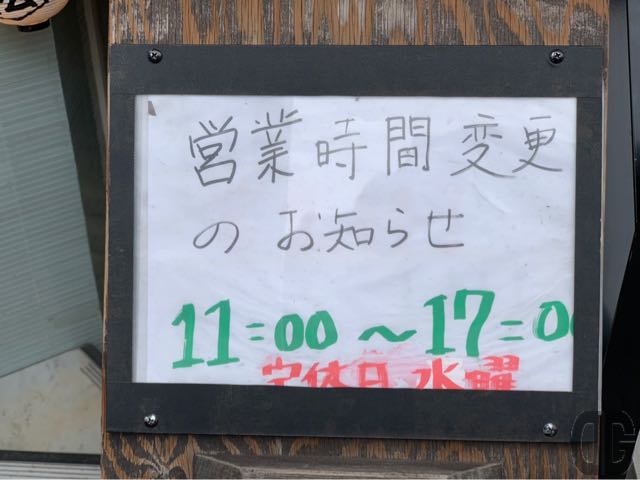 営業時間変更
のお知らせ
11:00～17:0
定休日 水曜